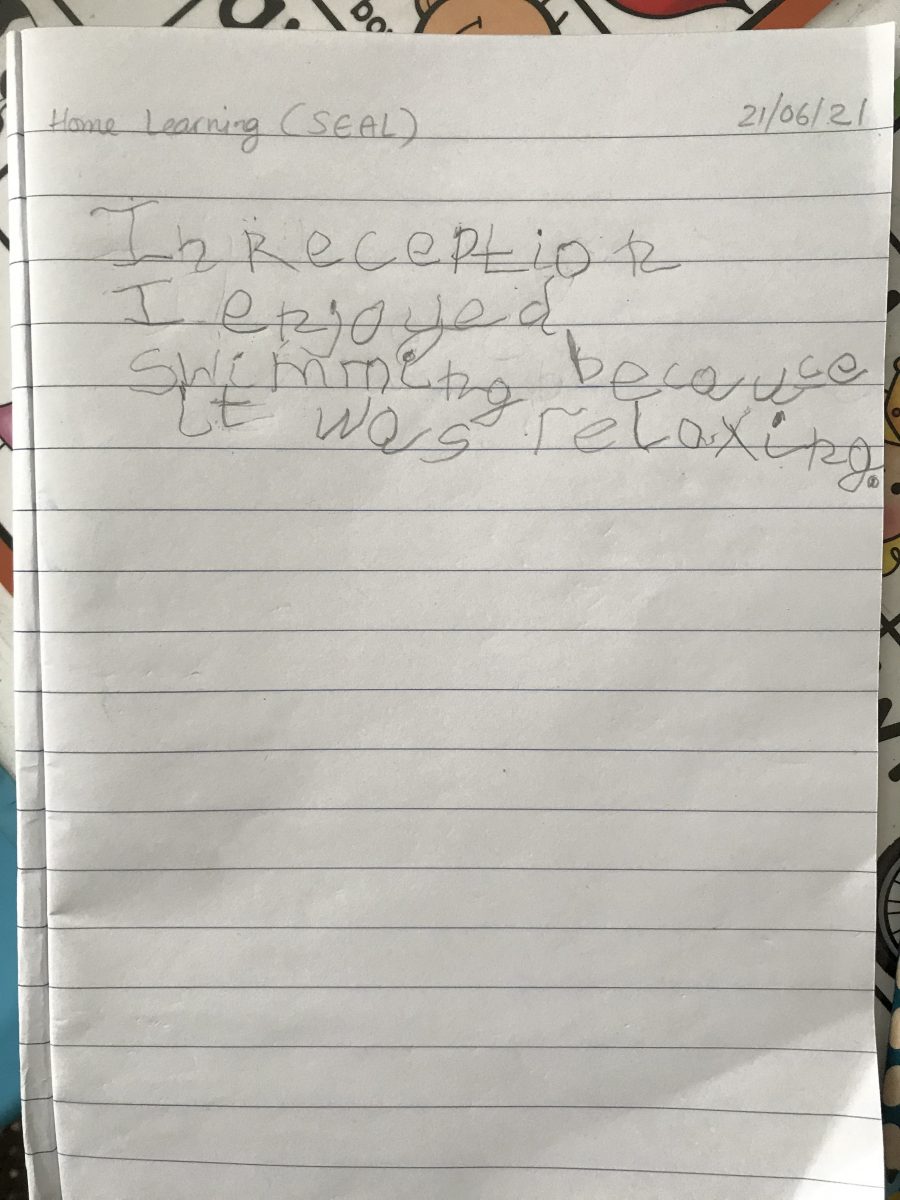 Home Learning (SEAL) 21/06/21
In Reception
I enjoyed
swimming because
it was relaxing.